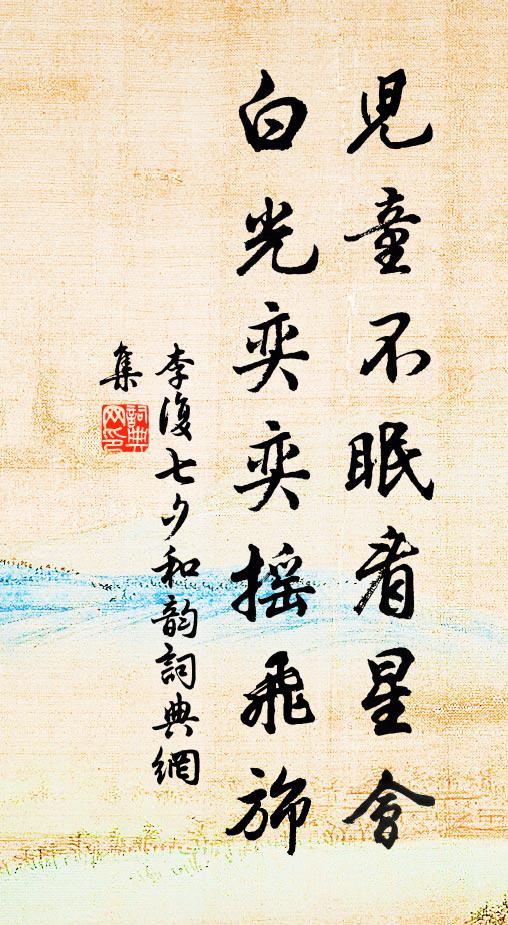 兒童不眠看星會
白光奕奕搖飛斾
李復七夕和韵詞典網
集
詞典
网印